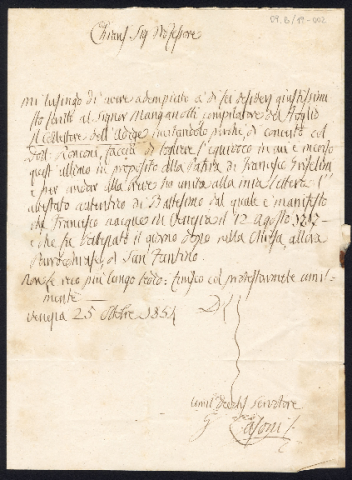 Chiariss Sig Professore
Mi lusingo di avere adempiuto a' di Lei desiderj giustissimi
scritti al Signor Manganotti compilatore del Foglio
Il Collettore dell'Adige invitandolo perchè, di concerto col
Dott. Ronconi, faccia di togliere l'equivoco in cui è incorso
quest'ultimo in proposito alla Patria di Francesco Griselini
e per andar alla breve ho unita alla mia lettera l'
attestato autentico di Battesimo dal quale è manifesto
che Francesco nacque in Venezia il 12 Agosto 1717
e che fu battezzato il giorno dopo nella Chiesa, allora
Parrocchiale, di San Fantino.
Non Le reco più lungo tedio: finisco col protestarmele umil-
mente
Venezia 25 Ottobre 1854
Di Lei
umil Servitore
Casoni